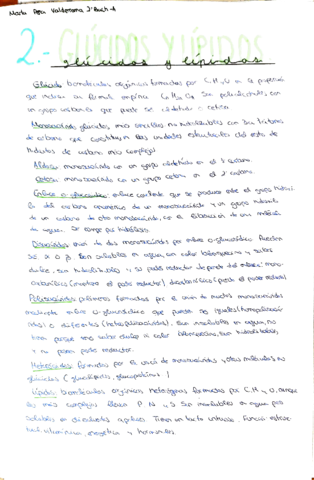 Marta Ros Valderrama 1º Bach-A
2.- GLÚCIDOS Y LÍPIDOS
glúcidos y lípidos
Glúcidos: biomoléculas orgánicas formadas por C, H, O en la proporción
que indica su fórmula empírica. Son polialcoholes, con
un grupo carbonilo que puede ser aldehído o cetona.
Monosacáridos: glúcidos más sencillos no hidrolizables con 3 a átomos
de carbono que constituyen las unidades estructurales del resto de
hidratos de carbono más complejos.
Aldosa: monosacárido con un grupo aldehído en el 1 carbono
Cetosa: monosacárido con un grupo cetona en el 2º carbono.
Enlace o-glucosídico: enlace covalente que se produce entre el grupo hidroxi-
lo del carbono anomérico de un monosacárido y un grupo hidroxilo
de un carbono de otro monosacárido, con la liberación de una molécula
de agua. Se rompe por hidrólisis.
Disacáridos: unión de dos monosacáridos por enlace o-glucosídico. Pueden
ser α o β. Son solubles en agua, son color blanquecino y sabor
dulce, son hidrolizables y su poder reductor depende del enlace: mono-
carbonílico (mantiene el poder reductor) dicarbonílico (pierde el poder reductor)
Polisacáridos: polímeros formados por la unión de muchos monosacáridos
mediante enlace o-glucosídico que pueden ser iguales (homopolisacári-
dos) o diferentes (heteropolisacáridos). Son insolubles en agua, no
tienen sabor dulce color blanquecino, son hidrolizables,
y no poseen poder reductor.
Heterósidos: formados por la unión de monosacáridos y otras moléculas no
glúcidas (glucolípidos, glucoproteínas)
Lípidos: biomoléculas orgánicas, heterogéneas, formadas por C, H y O, aunque
los más complejos llevan P, N y S. Son insolubles en agua, pero
solubles en disolventes apolares. Tienen un tacto untuoso. Función estruc-
tural, vitamínica, energética y hormonal.